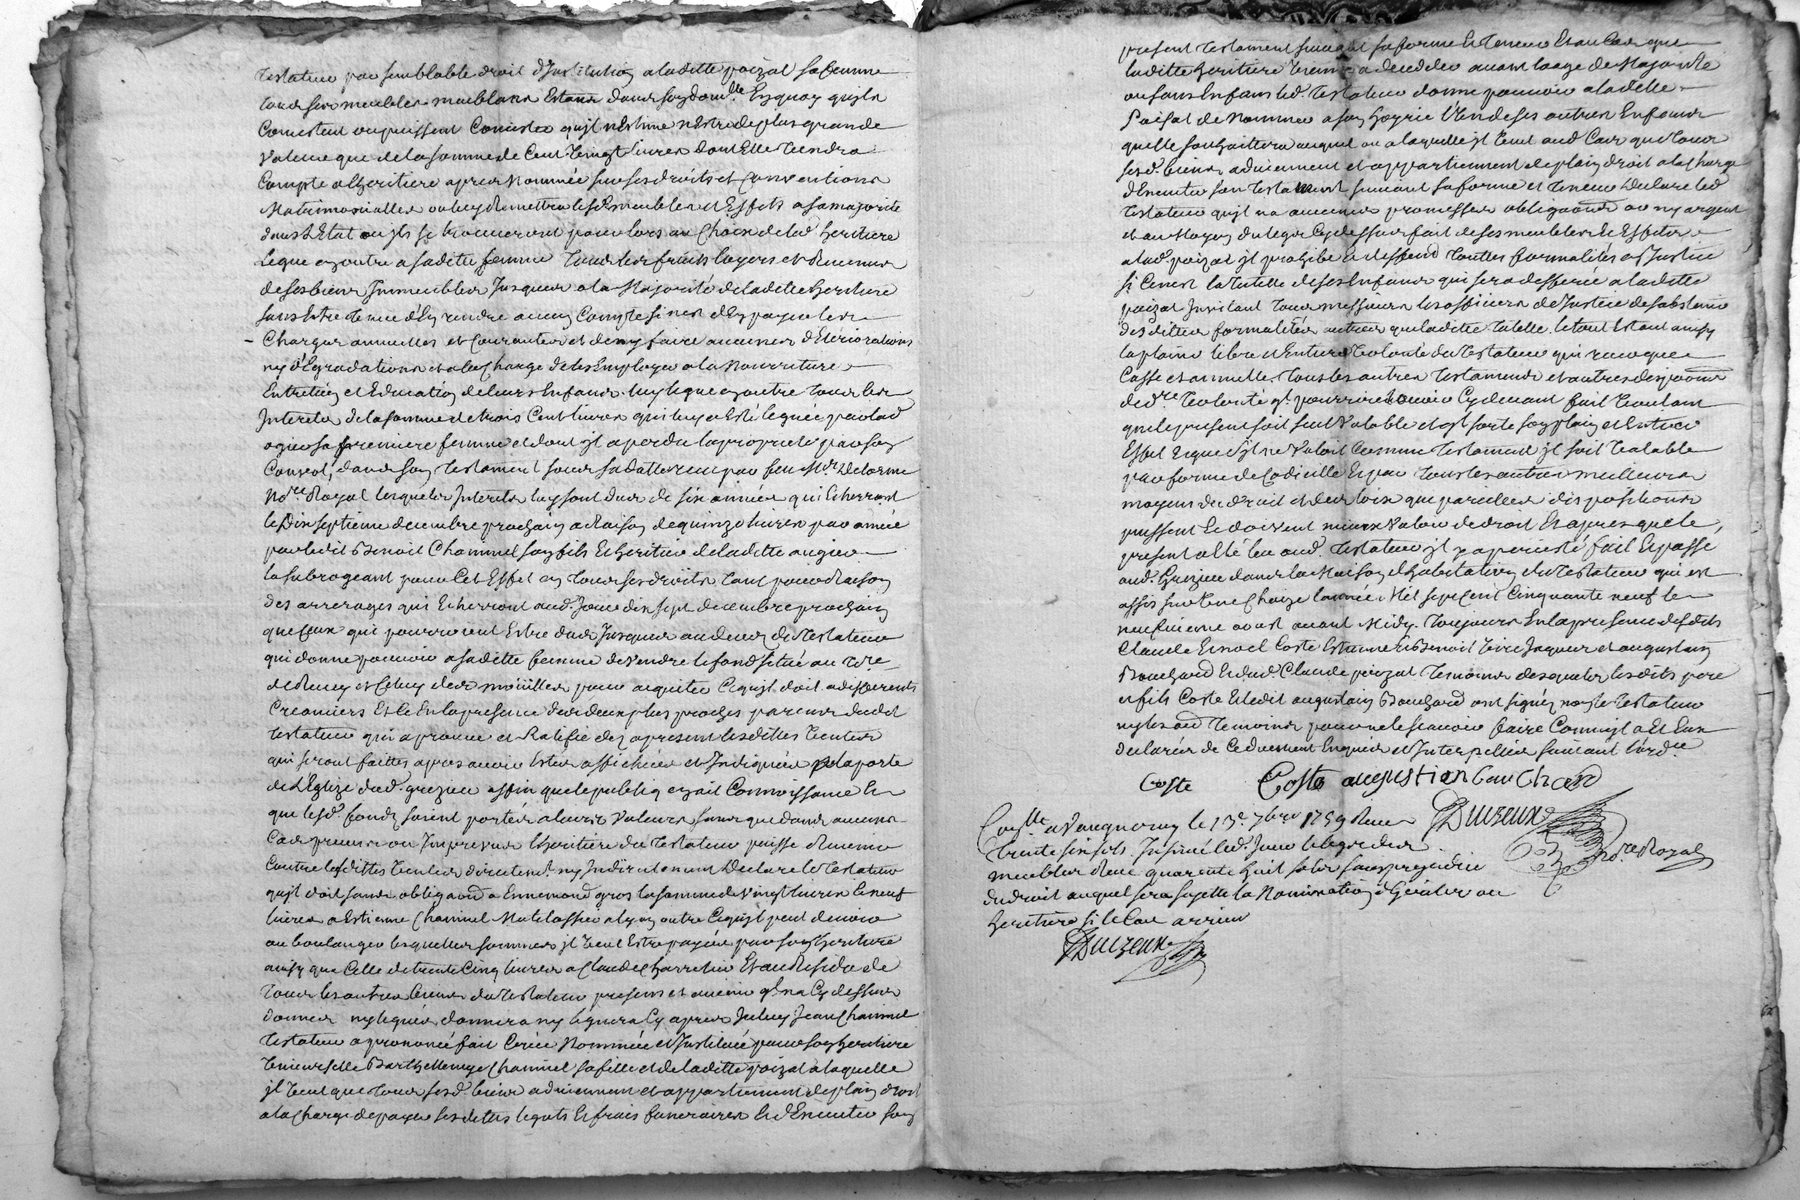 testateur par semblable droit d'Institution a laditte poizat sa femme
tous ses meubles meublans Estans dans son domlle En quoy quils
Consistent ou puissent Consister qu'jl n'Estime n'Estre de plus grande
valeur que de la somme de Cent vingt livres dont Elle tiendra
Compte a l'heritiere apres nommée sur ses droits et Conventions
Matrimonialles ou luy Remettra lesd meubles et Effets a sa majorité
dans l'Etat ou jls se trouveront pour lors au Choix de lad heritiere
legue en outre a saditte femme tous les fruits loyers et Revenus
de ses biens Jmmeubles Jusques a la Majorité de laditte heritiere
sans Estre tenue d'En rendre aucun Compte si n'est d'En payer les
Charges annuelles et Courantes et de n'y faire aucunes d'Eteriorations
ny d'Egradations et a la Charge de les Employer a la Nourriture
Entretien et Education de leurs Enfans. luy legue en outre tous les
Interets de la somme de trois Cent livres qui luy a Esté leguée par lad
ogier sa premiere femme et dont jl a perdu la proprieté par son
Convol, dans son testament sous sa datte reçu par feu Mr Delorme
Nore Royal lesquels Interets luy sont dus de six années qui Echerront
le Dix septieme decembre prochain a Raison de quinze livres par année
par ledit Benoit Chammel son fils Et heritier de laditte augier
la subrogeant pour Cet Effet en tous ses droits tant pour Raison
des arrerages qui Echerront aud. Jour dix sept decembre prochain
que Ceux qui pourroient Estre dus Jusques au deces du testateur
qui donne pouvoir a saditte femme de vendre le fond situé au tre
de Rency et Celuy des mouilles pour acquiter Ce qu'jl doit a differents
Creanciers Et Ce En la presence des deux plus proches parens dudit
testateur qui aprouve et Ratifie dez a present lesdittes ventes
qui seront faittes apres avoir Estées affichées et Jndiquées a la porte
de l'Eglize dud. grezieu affin que le public en ait Connoissance Et
que lesd. fonds soient portés a leurs valeurs sans que dans aucuns
Cas preveus ou Jmpreveus l'heritiere du testateur puisse Revenir
Contre lesdittes ventes directemt ny Jndirectement Declare le testateur
qu'jl doit sans obligaon a Ennemond gros la somme de vingt livres Et neuf
livres a Estienne Chammel Matelassier a lyon outre Ce qu'jl peut devoir
au boulanger lesquelles sommes jl veut Estre payées par son heritiere
ainsy que Celle de trente Cinq livres a Claude Charretier Et au Residu de
tous les autres biens du testateur presens et avenir ql n'a Cy dessus
donnés ny legués donnera ny leguera Cy apres Jceluy Jean Chammel
testateur a prononcé fait Créée Nommée et Jnstituée pour son heritiere
vniverselle Barthellemye Chammel sa fille et de laditte poizat a laquelle
jl veut que tous sesd. biens adviennent et appartiennent de plain droit
a la Charge de payer ses dettes legats et frais funeraires Et d'Executer son
present testament suivant sa forme Et teneur Et au Cas que
laditte heritiere vienne a deceder avant l'aage de Majorité
ou sans Enfans led. testateur donne pouvoir a laditte
Poizat de Nommer a son hoyrie l'Un de ses autres Enfans
quelle souhaittera auquel ou a laquelle jl veut aud Cas que tous
sesd. biens adviennent et appartiennent de plain droit a la Charge
d'Executer son testament suivant sa forme et teneur Declare led
testateur qu'jl n'a aucunes promesses obligaons or ny argent
et au Moyen du legat Cy dessus fait de ses meubles Et Effets
a lad. poizat jl prohibe Et deffend touttes formalités de Justice
si Ce n'est la tutelle de ses Enfans qui sera defferée a laditte
poizat Jnvitant tous messieurs les officiers de Justice de s'abstenir
desdittes formalités autres que laditte tutelle. le tout Estant ainsy
la plaine libre et Entiere volonté du testateur qui revoque
Casse et annulle tous les autres testamens et autres dispoons
de dre volonté ql pourroit avoir Cy devant fait voulant
que le present soit seul valable et qu'jl sorte son plain et Entier
Effet Et que s'jl ne valoit Comme testament jl soit valable
par forme de Codicille Et par tous les autres meilleurs
moyens de droit et des loix que pareilles dispositions
puissent Et doivent mieux valoir de droit Et apres que le
present a Eté leu aud. testateur jl y a persisté fait Et passé
aud. Grezieu dans la Maison d'habitation du testateur qui est
assis sur une Chaize l'année Mil sept Cent Cinquante neuf le
neufvieme aoust avant Midy. toujours En la presence desdits
Claude Et noel Coste Estienne Et Benoit Jacques et augustin
Bouchard Et dud. Claude poizat temoins desquels lesdits pere
et fils Coste Et ledit augustin Bouchard ont signés non le testateur
ny les aud temoins pour ne le scavoir faire Comme jl a Et Eux
declarés de Ce duement Enquis et Jnterpellés suivant l'ordce
Coste Coste augustien bouchard
DuizeuX
nore Royal
Conlle a vaugneray le 13e 7bre 1759 Reçu
trente six sols. Jnsinué led. Jour le legat des
meubles Reçu quarente huit sols sans prejudice
du droit auquel sera sujette la Nomination d'héritier ou
heritiere si le Cas arrive
DuizeuX